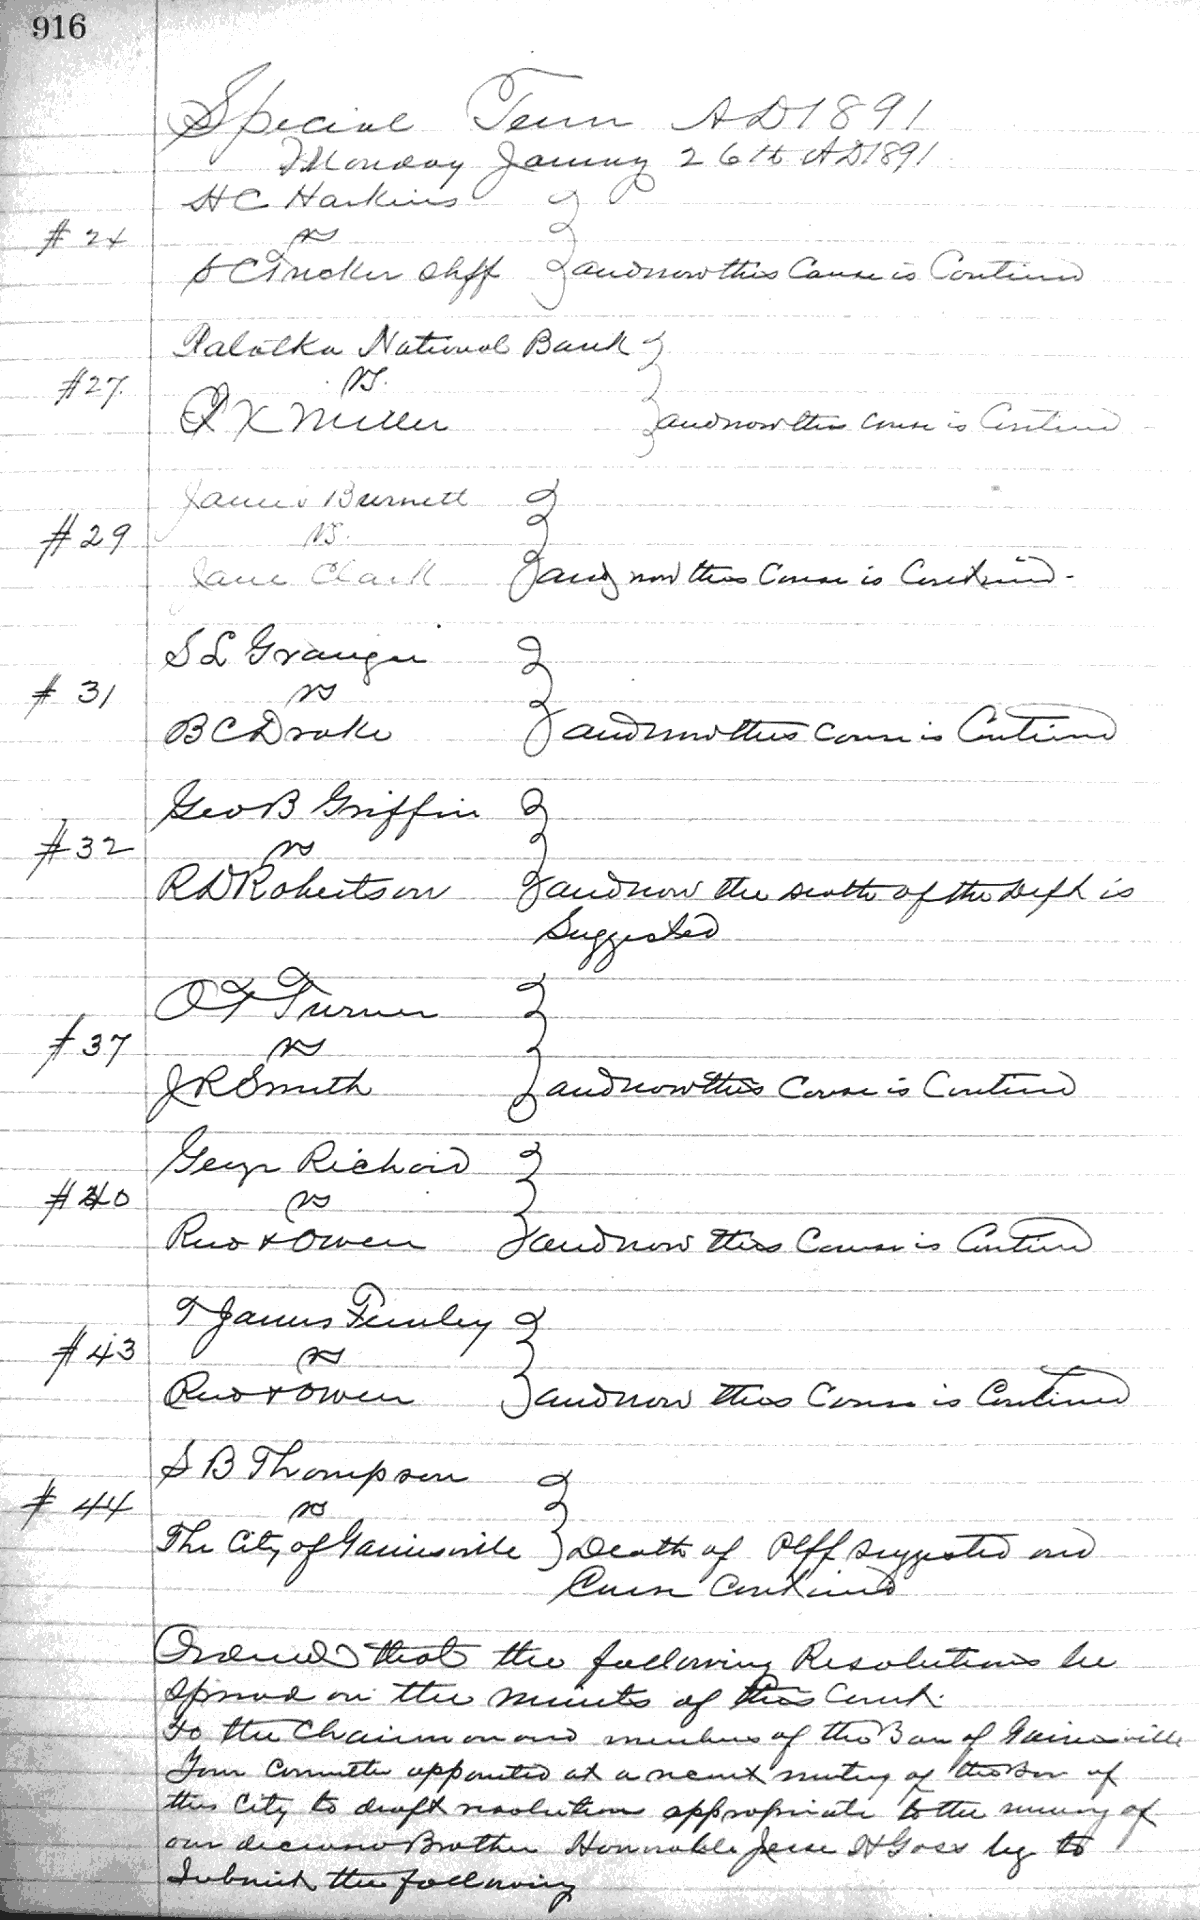 916
Special Term AD 1891
Monday January 26th AD 1891
H C Harkins
#24 vs
S C Tucker Shff } and now this Cause is Continued
Palatka National Bank
#27. vs.
K Miller } and now this cause is Continued
James Burnett
#29 vs.
Jane Clark } and now this Cause is Continued -
S L Granger
#31 vs
B C Drake } and now this cause is Continued
Geo B Griffin
#32 vs
R D Robertson } and now the death of the Deft is
Suggested
O F Turner
#37 vs
J R Smith } and now this Cause is Continued
George Richard
#40 vs
& Owen } and now this Cause is Continued
James Finley
#43 vs
& Owen } and now this Cause is Continued
S B Thompson
#44 vs
The City of Gainesville } Death of Plff suggested and
Cause Continued
Ordered that the following Resolutions be
Spread on the minutes of this Court.
To the Chairman and members of the Bar of Gainesville
Your Committee appointed at a recent meeting of the Bar of
this City to draft resolutions appropriate to the memory of
our deceased Brother Honorable Jesse H Goss beg to
Submit the following